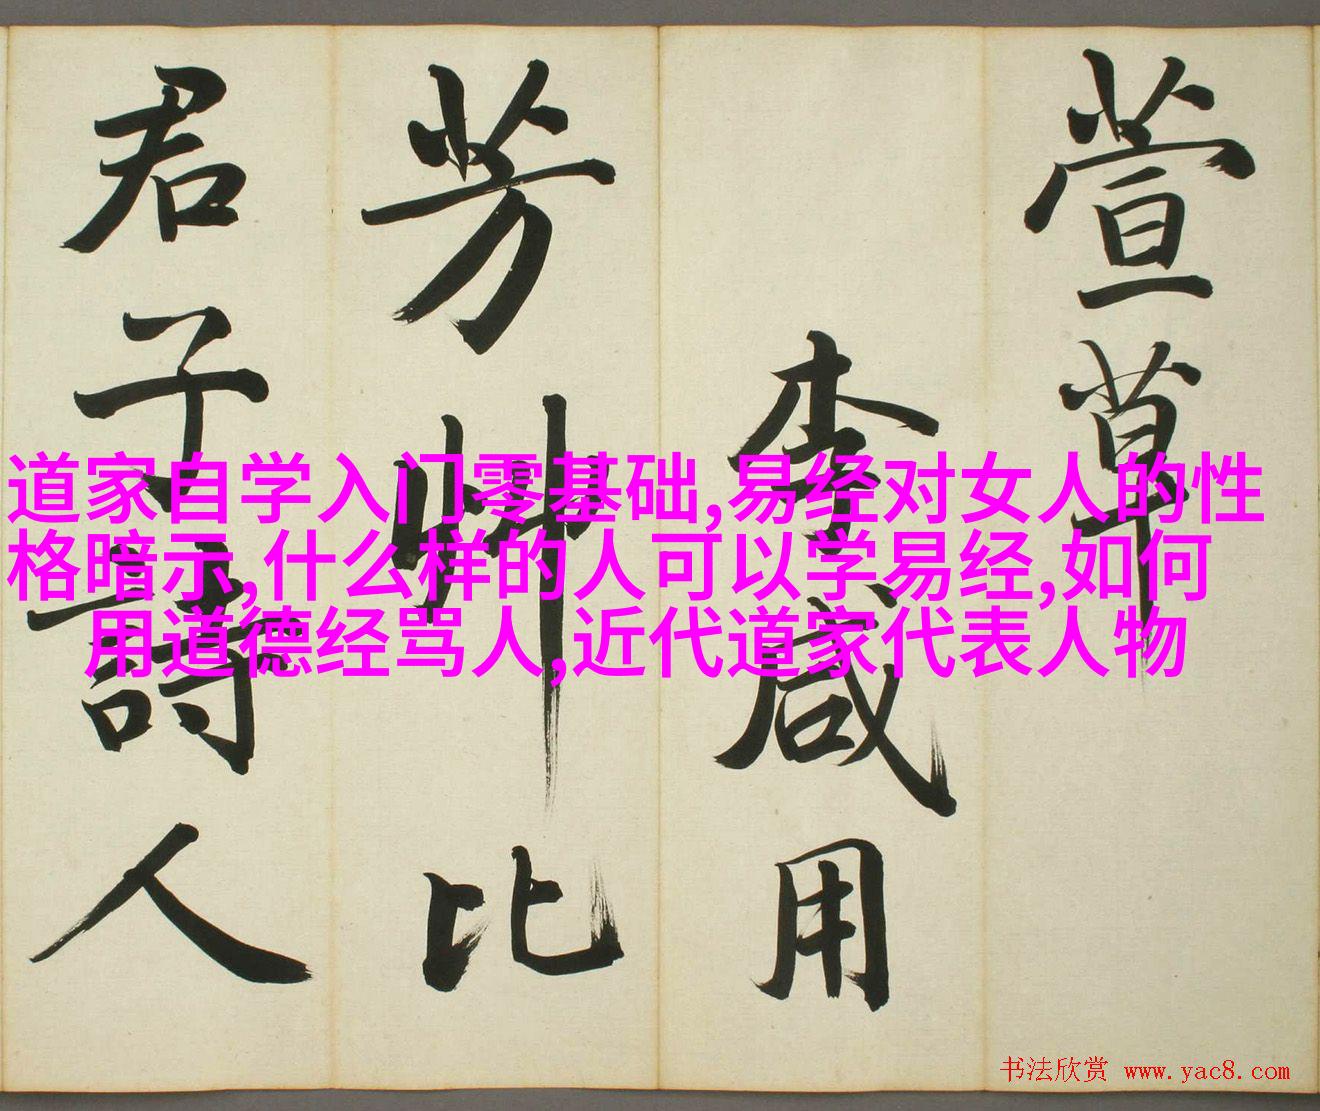 萱草
李咸用
芳艸比
君子詩人
道家自学入门零基础,易经对女人的性
格暗示,什么样的人可以学易经,如何
用道德经骂人,近代道家代表人物
书法欣赏 www.yac8.com